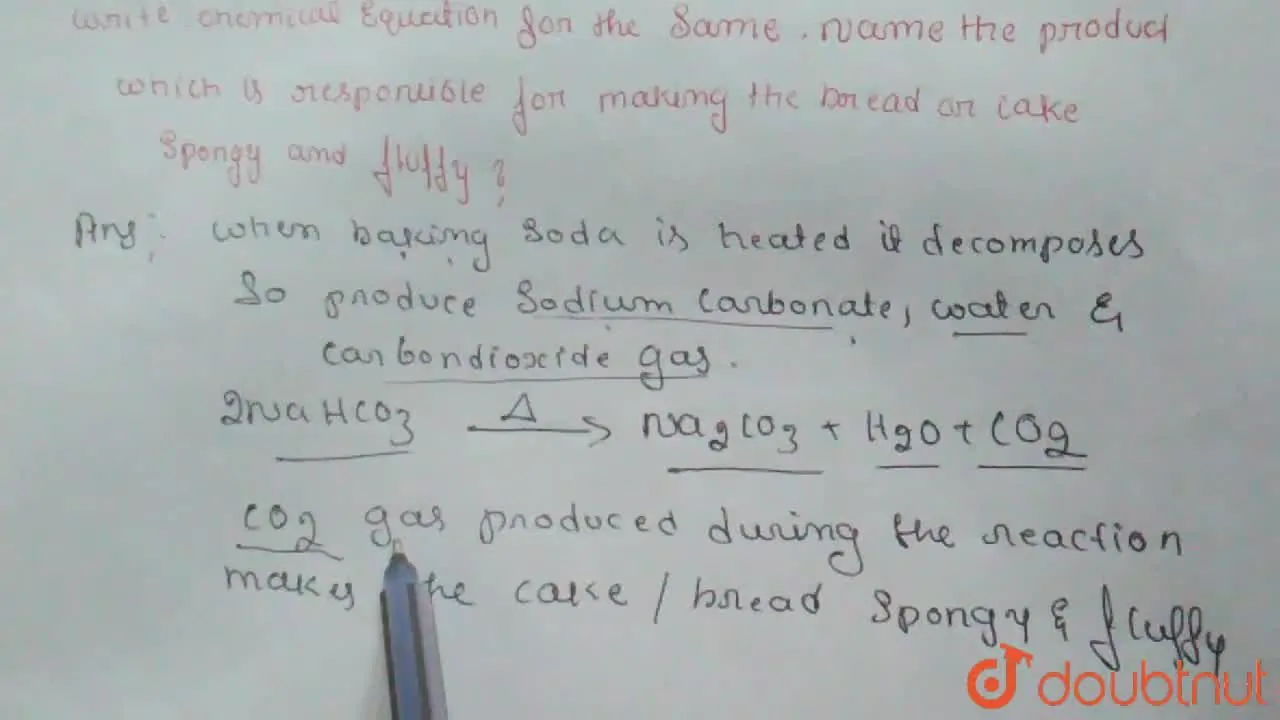 write chemical Equation for the Same. Name the product
which is responsible for making the bread or cake
Spongy and fluffy?
Ans: when baking soda is heated it decomposes
So produce Sodium carbonate, water &
carbondioxide gas.
2NaHCO3 Δ→ Na2CO3 + H2O + CO2
CO2 gas produced during the reaction
makes the cake / bread Spongy & fluffy
doubtnut